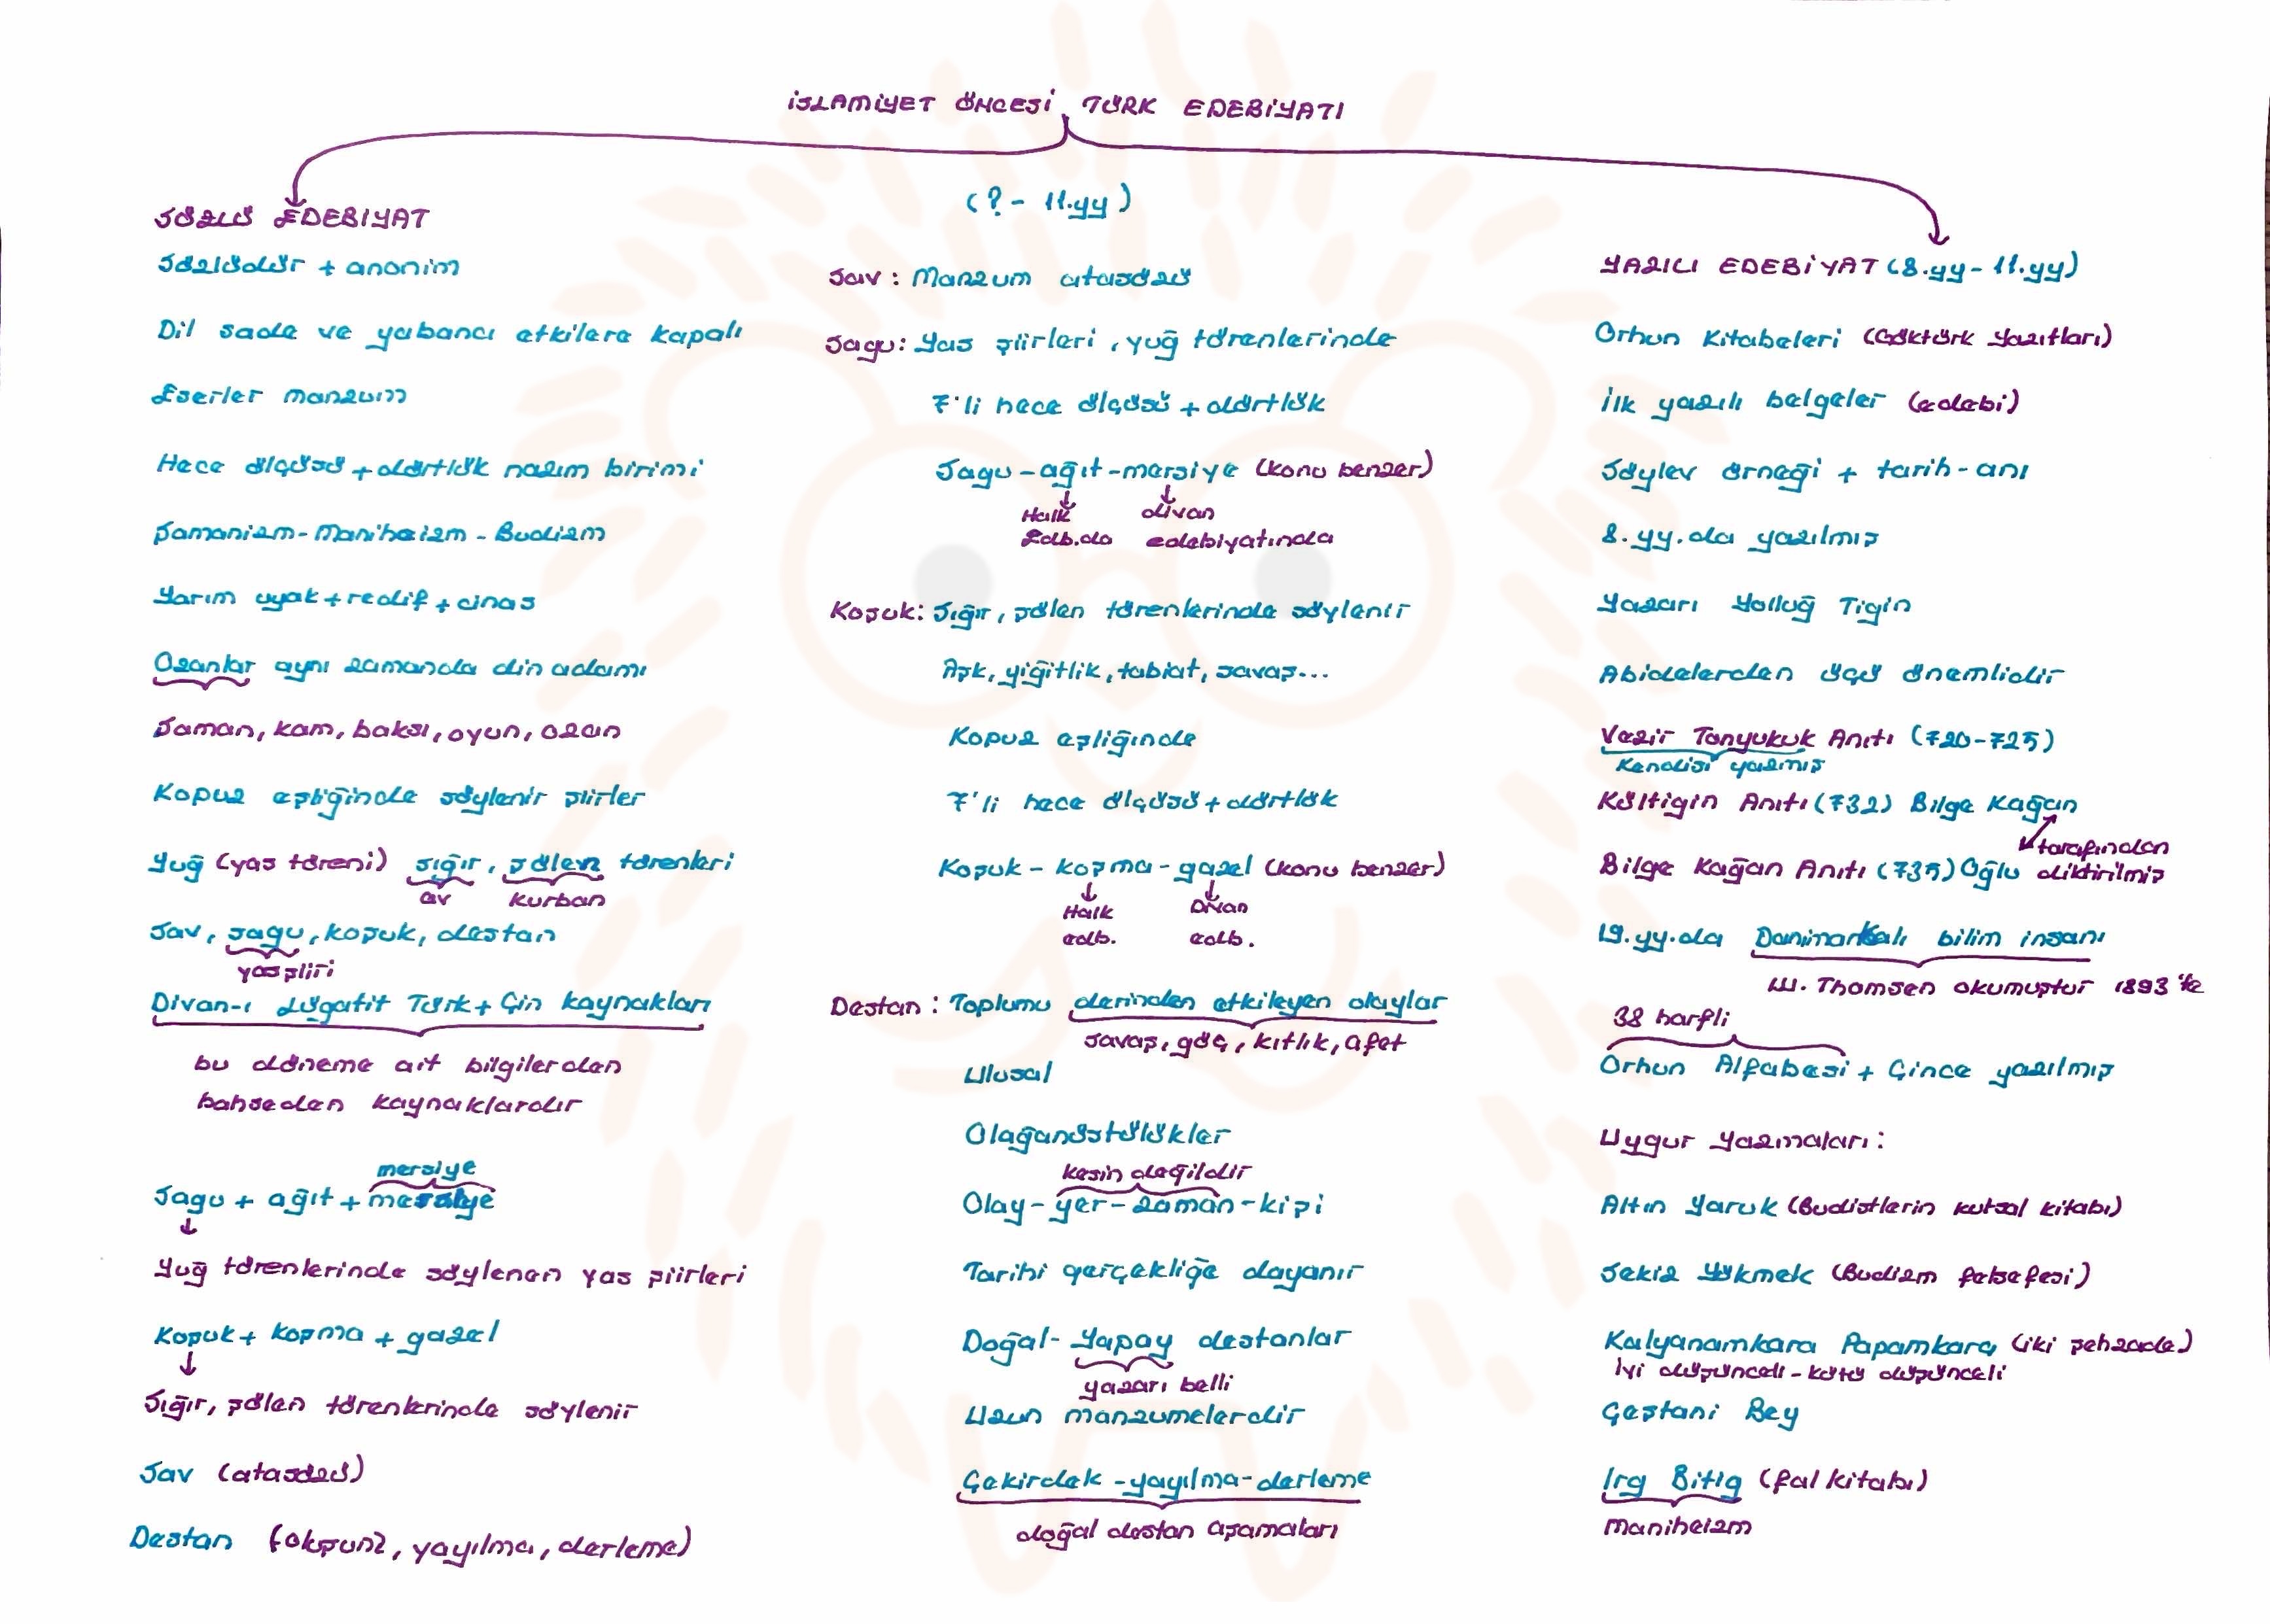 İSLAMİYET ÖNCESİ TÜRK EDEBİYATI
(? - 11.yy)
SÖZLÜ EDEBIYAT
Sözlüdür + anonim
Dil sade ve yabancı etkilere kapalı
Eserler manzum
Hece ölçüsü + dörtlük nazım birimi
Şamanizm - Maniheizm - Budizm
Yarım uyak + redif + cinas
Ozanlar aynı zamanda din adamı
Şaman, kam, baksı, oyun, ozan
Kopuz eşliğinde söylenir şiirler
Yuğ (yas töreni) sığır, şölen törenleri
av kurban
Sav, sagu, koşuk, destan
yas şiiri
Divan-ı Lügatit Türk + Çin kaynakları
bu döneme ait bilgilerden
bahseden kaynaklardır
mersiye
Sagu + ağıt +
Yuğ törenlerinde söylenen yas şiirleri
Koşuk + koşma + gazel
Sığır, şölen törenlerinde söylenir
Sav (atasözü)
Destan (oluşum, yayılma, derleme)
Sav : Manzum atasözü
Sagu: Yas şiirleri, yuğ törenlerinde
7'li hece ölçüsü + dörtlük
Sagu - ağıt - mersiye (konu benzer)
Halk divan
Edb.da edebiyatında
Koşuk: Sığır, şölen törenlerinde söylenir
Aşk, yiğitlik, tabiat, savaş...
Kopuz eşliğinde
7'li hece ölçüsü + dörtlük
Koşuk - koşma - gazel (konu benzer)
Halk Divan
edb. edb.
Destan : Toplumu derinden etkileyen olaylar
savaş, göç, kıtlık, afet
Ulusal
Olağanüstülükler
kesin değildir
Olay - yer - zaman - kişi
Tarihi gerçekliğe dayanır
Doğal - Yapay destanlar
yazarı belli
Uzun manzumelerdir
Çekirdek - yayılma - derleme
doğal destan aşamaları
YAZILI EDEBİYAT (8.yy - 11.yy)
Orhun Kitabeleri (Göktürk Yazıtları)
İlk yazılı belgeler (edebi)
Söylev örneği + tarih - anı
8. yy.da yazılmış
Yazarı Yolluğ Tigin
Abidelerden üçü önemlidir
Vezir Tonyukuk Anıtı (720-725)
Kendisi yazmış
Kültigin Anıtı (732) Bilge Kağan
tarafından
Bilge Kağan Anıtı (735) Oğlu diktirilmiş
19.yy.da Danimarkalı bilim insanı
W. Thomsen okumuştur 1893'te
38 harfli
Orhun Alfabesi + Çince yazılmış
Uygur Yazmaları :
Altın Yaruk (Budistlerin kutsal kitabı)
Sekiz Yükmek (Budizm felsefesi)
Kalyanamkara Papamkara (iki şehzade)
İyi düşünceli - kötü düşünceli
Çaştani Bey
Irg Bitig (fal kitabı)
Maniheizm